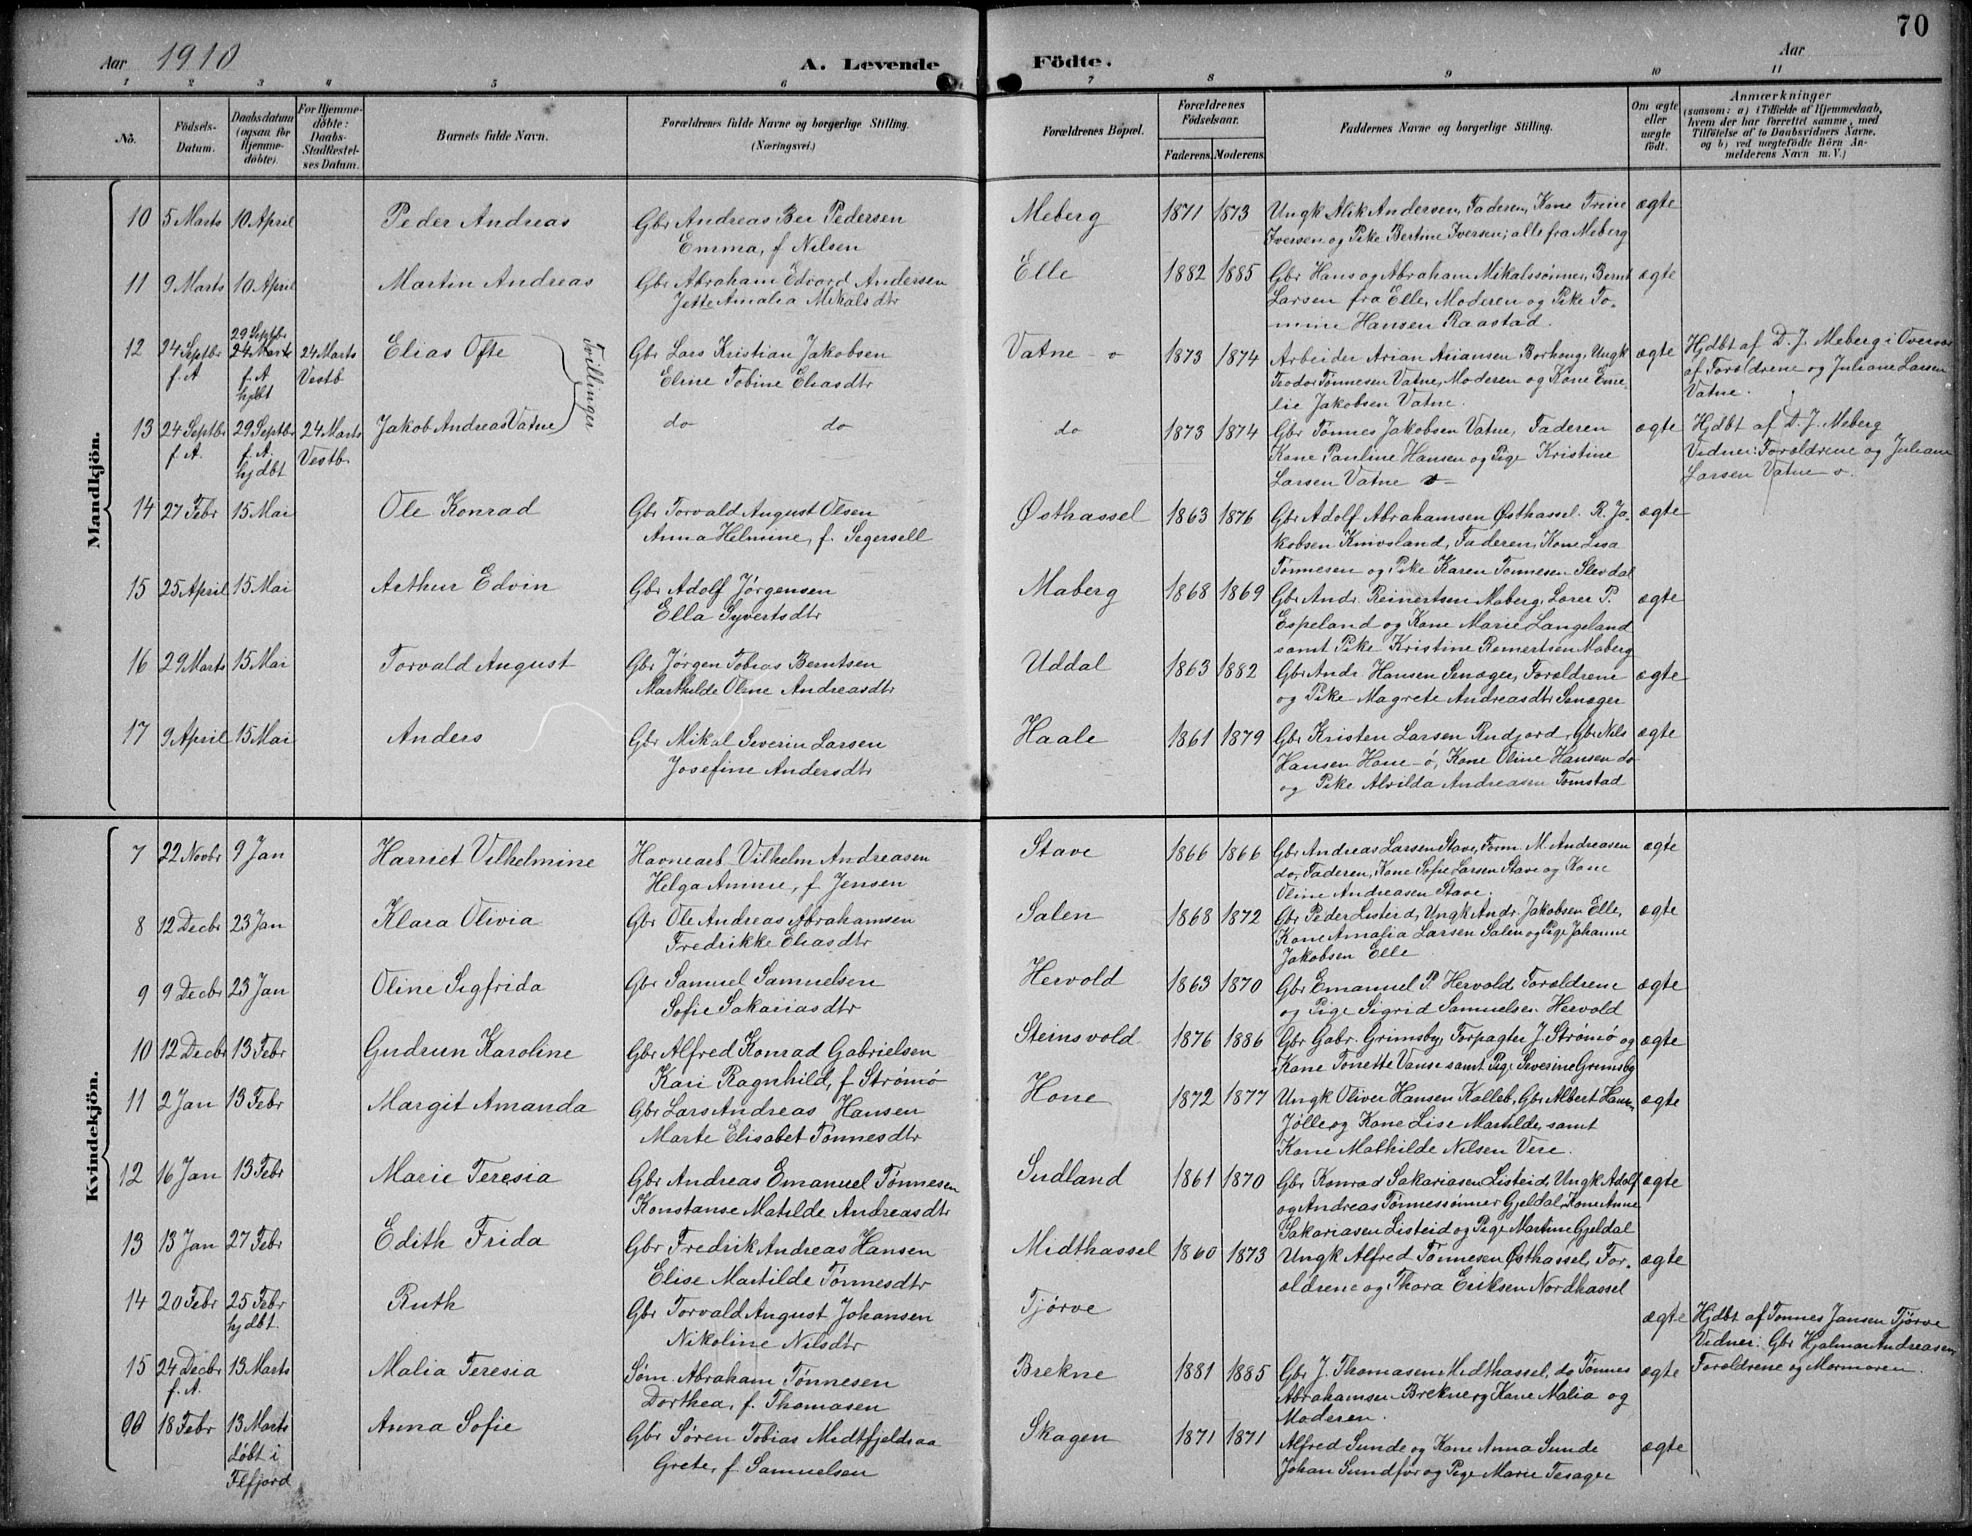 70
Aar 1910 A. Levende Födte. Aar
1 2 3 4 5 6 7 8 9 10 11
No.
Födsels-Datum.
Daabsdatum (ogsaa for Hjemme-döbte).
For Hjemme-döbte: Daabs-Stadfæstel-ses Datum.
Barnets fulde Navn.
Forældrenes fulde Navne og borgerlige Stilling. (Næringsvei.)
Forældrenes Bopæl.
Forældrenes Födselsaar.
Faderens. Moderens.
Faddernes Navne og borgerlige Stilling.
Om ægte eller uægte födt.
Anmærkninger
(saasom: a) i Tilfælde af Hjemmedaab, hvem der har forrettet samme, med Tilföielse af to Daabsvidners Navne. og b) ved uægtefödte Börn An-melderens Navn m. V.)
Mandkjön.
10 5 Marts 10 April Peder Andreas Gbr Andreas Ber Pedersen Meberg 1871 1873 Ungk Alik Andersen, Faderen, Kone Trine ægte
Emma, f. Nilsen Iversen og Pike Bertine Iversen; alle fra Meberg
11 9 Marts 10 April Martin Andreas Gbr Abraham Edvard Andersen Elle 1882 1885 Gbr Hans og Abraham Mikalssønner, Bernt ægte
Jette Amalia Mikalsdtr Larsen fra Elle, Moderen og Pike To-
mine Hansen Raastad.
12 24 Septbr f. A 29 Septbr 24 Marts f. A hjdbt 24 Marts Vestb. Elias Ofte Tvillinger Gbr Lars Kristian Jakobsen Vatne 1873 1874 Arbeider Arian Borhaug, Ungk ægte Hjdbt af D. J. Meberg i
Eline Tobine Eliasdtr Teodor Tønnesen Vatne, Moderen og Kone Eme- af Forældrene og Juliane Larsen
lie Jakobsen Vatne. Vatne.
13 24 Septbr f. A. 29 Septbr f. A. hjdbt 24 Marts Vestb. Jakob Andreas Vatne do do do 1873 1874 Gbr Tønnes Jakobsen Vatne, Faderen ægte Hjdbt af D. J. Meberg
Kone Pauline Hansen og Pige Kristine Vidner: Forældrene og Juliane
Larsen Vatne Larsen Vatne
14 27 Febr 15 Mai Ole Konrad Gbr Torvald August Olsen Østhassel 1863 1876 Gbr Adolf Abrahamsen Østhassel. R. Ja- ægte
Anna Helmine, f. Segersell kobsen Knivsland, Faderen, Kone Lisa
Tønnesen og Pike Karen Tønnesen Slevdal
15 25 April 15 Mai Arthur Edvin Gbr Adolf Jørgensen Maberg 1868 1869 Gbr Andr. Reinertsen Maberg, Lærer P. ægte
Ella Syvertsdtr Espeland og Kone Marie Langeland
samt Pike Kristine Reinertsen Maberg
16 29 Marts 15 Mai Torvald August Gbr Jørgen Tobias Berntsen Uddal 1863 1882 Gbr Andr. Hansen Snæger, Forældrene ægte
Marthilde Oline Andreasdtr og Pike Magrete Andreasdtr Snæger
17 9 April 15 Mai Anders Gbr Mikal Severin Larsen Haale 1861 1879 Gbr Kristen Larsen Rudjord, Gbr Nils ægte
Josefine Andersdtr Hansen Hone, Kone Oline Hansen do
og Pike Alvilda Andreasen Tomstad
Kvindekjön.
7 22 Novbr 9 Jan Harriet Vilhelmine Havnearb Vilhelm Andreasen Stave 1866 1866 Gbr Andreas Larsen Stave, Form. M. Andreasen ægte
Helga Amme, f. Jensen do, Faderen, Kone Sofie Larsen Stave og Kone
Oline Andreasen Stave.
8 12 Decbr 23 Jan Klara Olivia Gbr Ole Andreas Abrahamsen Salen 1868 1872 Gbr Peder Listeid, Ungk Andr. Jakobsen Elle, ægte
Fredrikke Eliasdtr Kone Amalia Larsen Salen og Pige Johanne
Jakobsen Elle
9 9 Decbr 23 Jan Oline Sigfrida Gbr Samuel Samuelsen Hervold 1863 1870 Gbr Emanuel P. Hervold, Forældrene ægte
Sofie Sakariasdtr og Pige Sigrid Samuelsen Hervold
10 12 Decbr 13 Febr Gudrun Karoline Gbr Alfred Konrad Gabrielsen Steinsvold 1876 1886 Gbr Gabr. Grimsby, Forpagter J. Strømø og ægte
Kari Ragnhild, f. Strømø Kone Tonette Vanse samt Pige Severine Grimsby
11 2 Jan 13 Febr Margit Amanda Gbr Lars Andreas Hansen Hone 1872 1877 Ungk Oliver Hansen Kalleb, Gbr Albert Hansen ægte
Marte Elisabet Tønnesdtr Jølle og Kone Lise Martilde, samt
Kone Mathilde Nilsen Vere.
12 16 Jan 13 Febr Marie Teresia Gbr Andreas Emanuel Tønnesen Sudland 1861 1870 Gbr Konrad Sakariasen Listeid, Ungk Adolf ægte
Konstanse Matilde Andreasdtr og Andreas Tønnessønner Gjeldal, Kone Anne
Sakariasen Listeid og Pige Martine Gjeldal
13 13 Jan 27 Febr Edith Frida Gbr Fredrik Andreas Hansen Midthassel 1860 1873 Ungk Alfred Tønnesen Østhassel, For- ægte
Elise Martilde Tønnesdtr ældrene og Thora Eriksen Nordhassel
14 20 Febr 25 Febr hjdbt. Ruth Gbr Torvald August Johansen Tjørve ægte Hjdbt af Tønnes Jansen Tjørve
Nikoline Nilsdtr Vidner: Gbr Hjalmar Andreasen,
Forældrene og Mormoren.
15 24 Decbr f. A. 13 Marts Malia Teresia Søm. Abraham Tønnesen Brekne 1881 1885 Gbr J. Thomasen Midthassel, do Tønnes ægte
Dorthea, f. Thomasen Abrahamsen Brekne og Kone Malia og
Moderen.
18 Febr 13 Marts døbt i Flfjord Anna Sofie Gbr Søren Tobias Midtfjeldsaa Skagen 1871 1871 Alfred Sunde og Kone Anna Sunde ægte
Grete, f. Samuelsen Johan Sundfør og Pige Marie